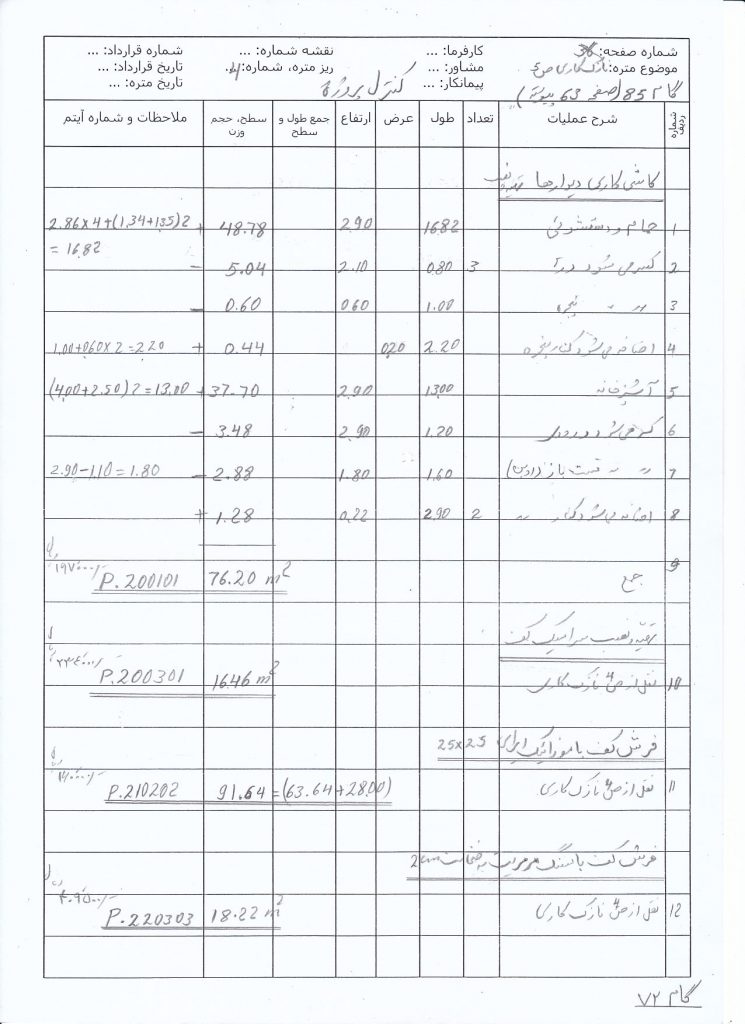 شماره صفحه: 36 کارفرما: ... نقشه شماره: ... شماره قرارداد: ...
موضوع متره: نازک کاری ص 5 مشاور: ... ریز متره، شماره: 4. تاریخ قرارداد: ...
گام 85 (صفحه 63 پیوست) پیمانکار: ... کنترل پروژه تاریخ متره: ...
شماره ردیف شرح عملیات تعداد طول عرض ارتفاع جمع طول و سطح سطح، حجم وزن ملاحظات و شماره آیتم
کاشی کاری دیوارها تهیه و نصب
1 حمام و دستشوئی 1682 2.90 48.78 + 2.86×4+(1.34+1.35)2
= 16.82
2 کسر می شود در 3 0.80 2.10 5.04 -
3 〃 〃 پنجره 1.00 0.60 0.60 -
4 اضافه می شود کنار پنجره 2.20 0.20 0.44 + 1.00+0.60×2=2.20
5 آشپزخانه 13.00 2.90 37.70 + (4.00+2.50)2=13.00
6 کسر می شود در ورودی 1.20 2.90 3.48 -
7 〃 〃 قسمت باز 1.60 1.80 2.88 - 2.90-1.10=1.80
8 اضافه می شود کنار 〃 2 2.90 0.22 1.28 +
9 جمع 76.20 m² P.200101
تهیه و نصب سرامیک کف
10 نقل از ص 4 نازک کاری 16.46 m² P.200301
فرش کف با موزائیک ایرانی 25×25
11 نقل از ص 4 نازک کاری 91.64=(63.64+28.00) P.210202
فرش کف با سنگ مرمریت به ضخامت 2cm
12 نقل از ص 4 نازک کاری 18.22 m² P.220303
گام ۷۲